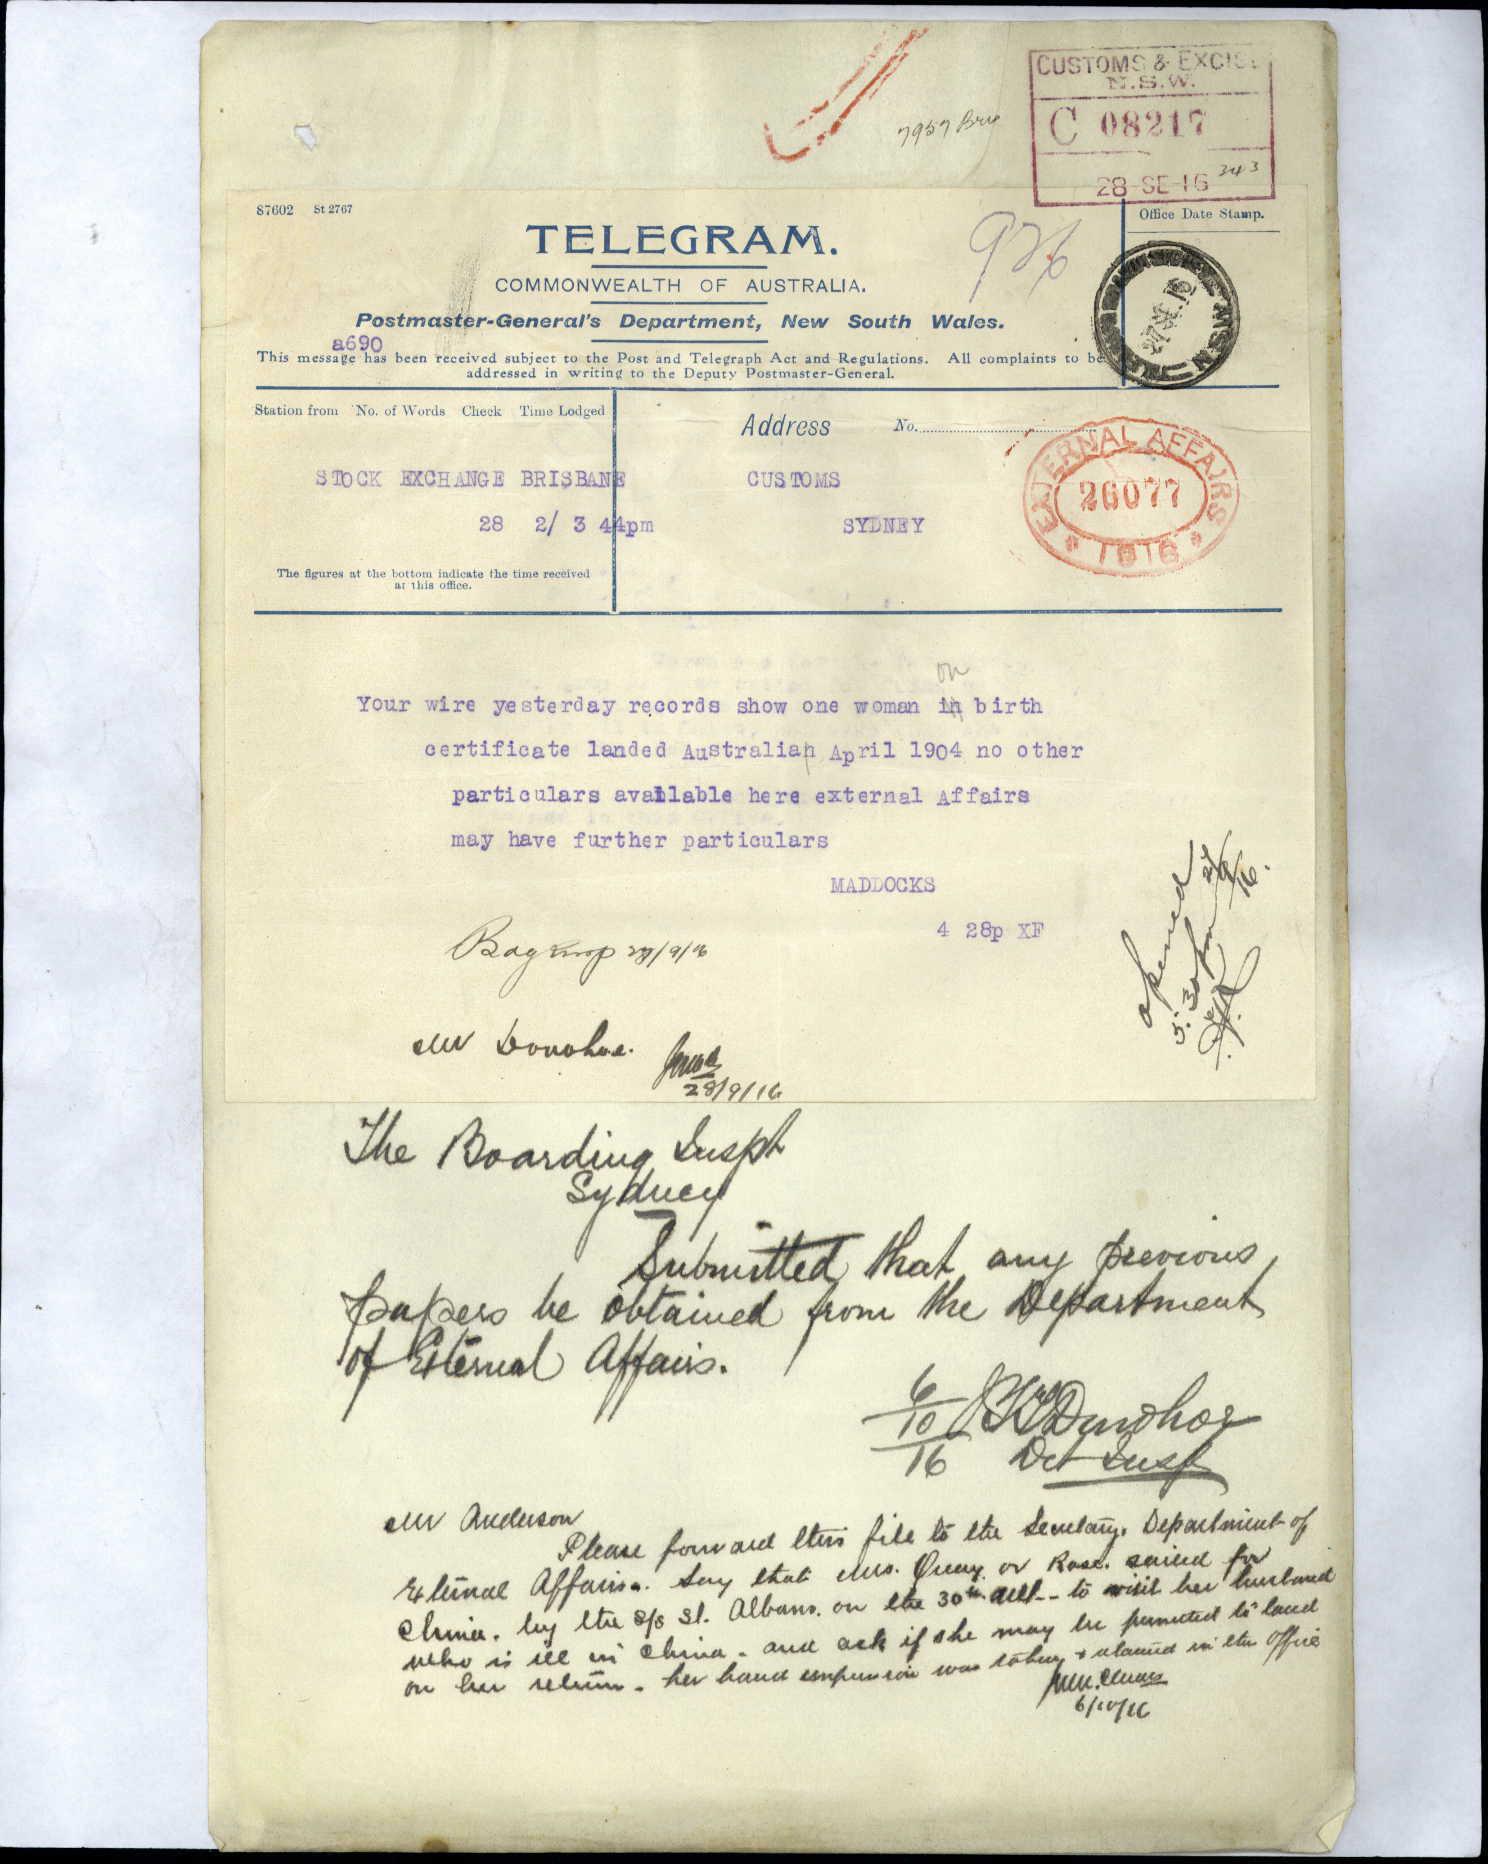 7957
CUSTOMS & EXCISE
N.S.W.
C 08217
28 SE 16
343
87602 St 2767
Office Date Stamp.
TELEGRAM.
926
COMMONWEALTH OF AUSTRALIA.
Postmaster-General's Department, New South Wales.
a690
This message has been received subject to the Post and Telegraph Act and Regulations. All complaints to be
addressed in writing to the Deputy Postmaster-General.
Station from No. of Words Check Time Lodged
Address No.
EXTERNAL AFFAIRS
26077
* 1916 *
STOCK EXCHANGE BRISBANE
CUSTOMS
28 2/ 3 44pm
SYDNEY
The figures at the bottom indicate the time received
at this office.
on
Your wire yesterday records show one woman in birth
certificate landed Australian April 1904 no other
particulars available here external Affairs
may have further particulars
MADDOCKS
4 28p XF
28/9/16
opened
5.30pm
28/9/16.
Mr Donohoe.
28/9/16
The Boarding Inspt
Sydney
Submitted that any previous
papers be obtained from the Department
of External Affairs.
6/10/16 Donohoe
Det Insp
Mr Anderson
Please forward this file to the Secretary. Department of
External Affairs. Say that Mrs. Quay or Rose. sailed for
China. by the s/s St. Albans. on the 30th ult-- to visit her husband
who is ill in China. and ask if she may be permitted to land
on her return. her hand impression was taken & retained in the office
6/10/16